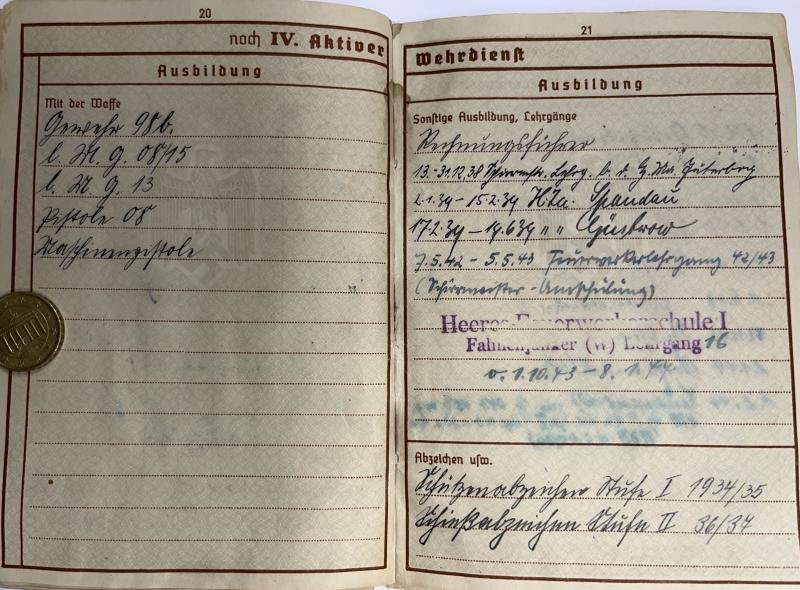 20
noch IV. Aktiver
Ausbildung
Mit der Waffe
Gewehr 98b.
l. M. G. 08/15
l. M. G. 13
Pistole 08
Maschinenpistole
21
Wehrdienst
Ausbildung
Sonstige Ausbildung, Lehrgänge
Rechnungsführer
13.-31.12.38 Schirrmstr. Lehrg. b. d. H. Ma Jüterbog
2.1.39 – 15.2.39 H.Za. Spandau
17.2.39 – 19.6.39 " " Güstrow
7.5.42 – 5.5.43 Feuerwerkerlehrgang 42/43
(Schirrmeister-Umschulung)
Heeres-Feuerwerkerschule I
Fahnenjunker (W) Lehrgang 16
v. 1.10.43 – 8.1.44
Abzeichen usw.
Schützenabzeichen Stufe I 1934/35
Schießabzeichen Stufe II 36/37